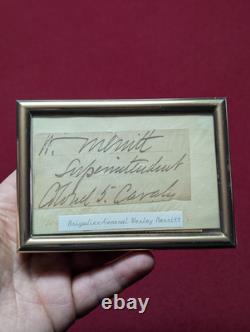 W. Merritt
Superintendent
Colonel 5. Cavaly
Brigadier General Wesley Merritt